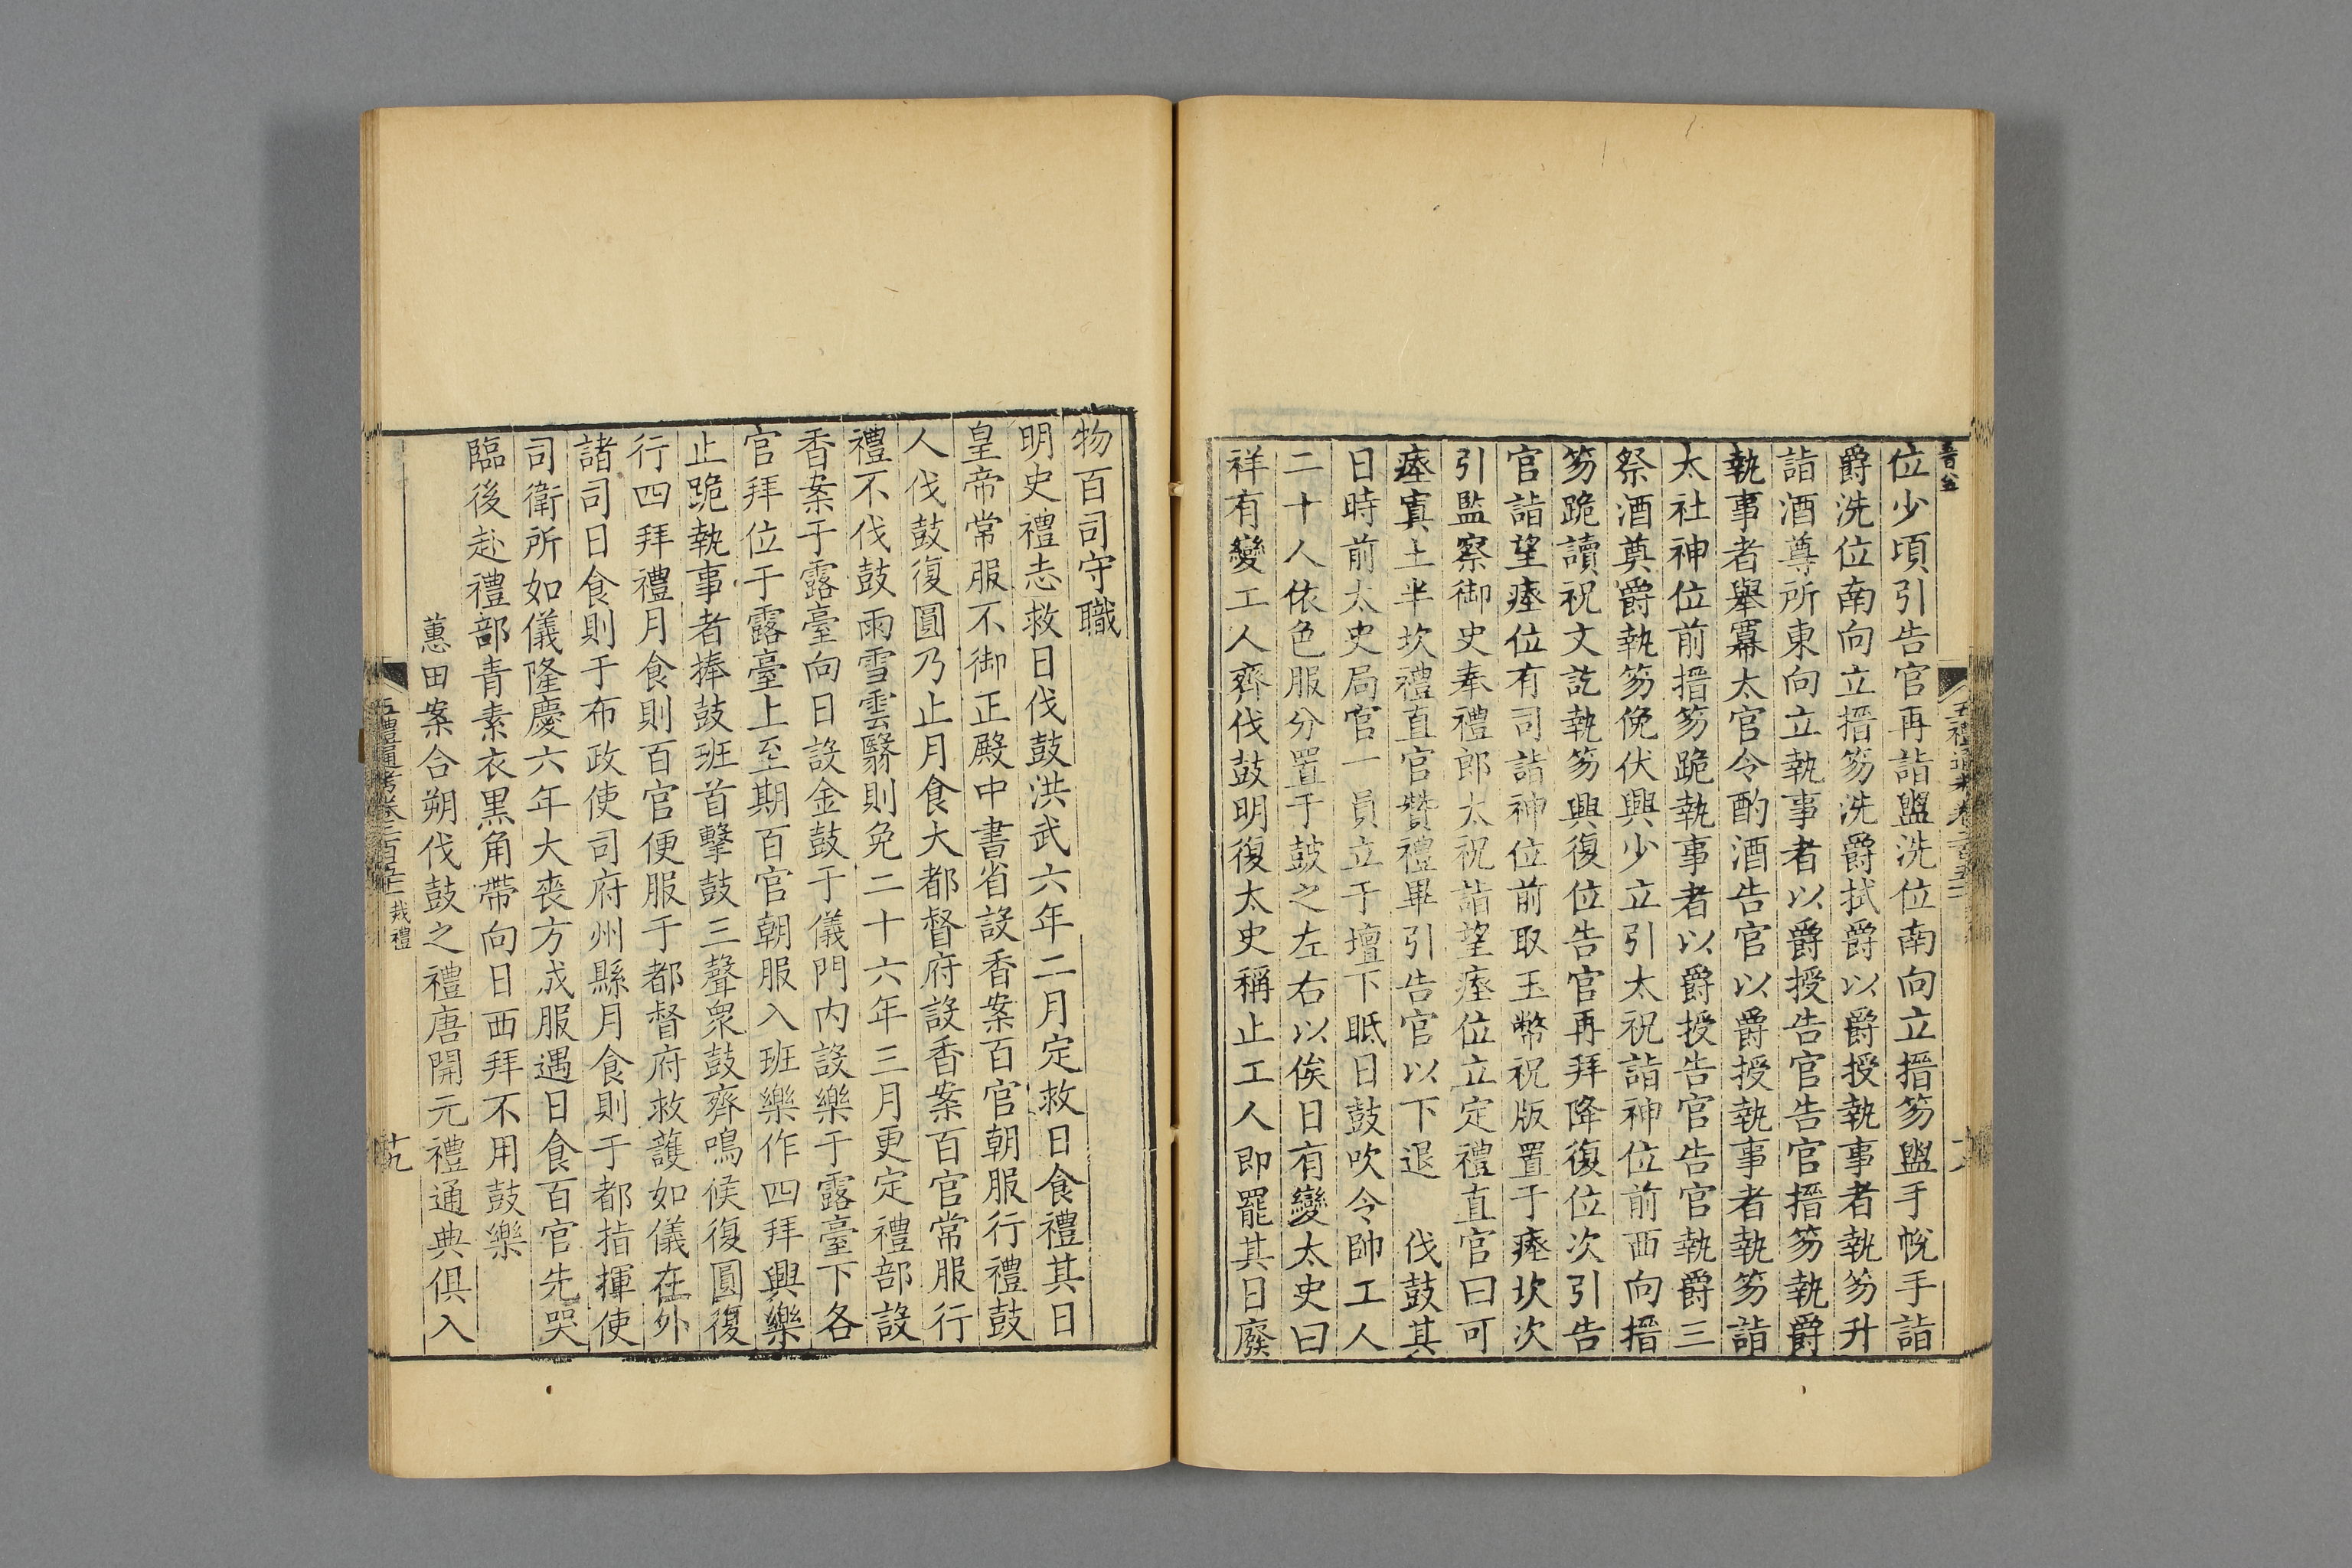 位少頃引告官再詣盥洗位南向立搢笏盥手帨手詣
爵洗位南向立搢笏洗爵拭爵以爵授執事者執笏升
詣酒尊所東向立執事者以爵授告官告官搢笏執爵
執事者舉冪太官令酌酒告官以爵授執事者執笏詣
太社神位前搢笏跪執事者以爵授告官告官執爵三
祭酒奠爵執笏俛伏興少立引太祝詣神位前西向搢
笏跪讀祝文訖執笏興復位告官再拜降復位次引告
官詣望瘞位有司詣神位前取玉幣祝版置于瘞坎次
引監察御史奉禮郎太祝詣望瘞位立定禮直官曰可
瘞寘土半坎禮直官贊禮畢引告官以下退　伐鼓其
日時前太史局官一員立于壇下眡日鼓吹令帥工人
二十人依色服分置于鼓之左右以俟日有變太史曰
祥有變工人齊伐鼓明復太史稱止工人即罷其日廢
物百司守職
明史禮志救日伐鼓洪武六年二月定救日食禮其日
皇帝常服不御正殿中書省設香案百官朝服行禮鼓
人伐鼓復圓乃止月食大都督府設香案百官常服行
禮不伐鼓雨雪雲翳則免二十六年三月更定禮部設
香案于露臺向日設金鼓于儀門内設樂于露臺下各
官拜位于露臺上至期百官朝服入班樂作四拜興樂
止跪執事者捧鼓班首擊鼓三聲衆鼓齊鳴候復圓復
行四拜禮月食則百官便服于都督府救護如儀在外
諸司日食則于布政使司府州縣月食則于都指揮使
司衛所如儀隆慶六年大喪方成服遇日食百官先哭
臨後赴禮部青素衣黒角帶向日西拜不用鼓樂
蕙田案合朔伐鼓之禮唐開元禮通典俱入
五禮通考卷二百五十二 烖禮
十九